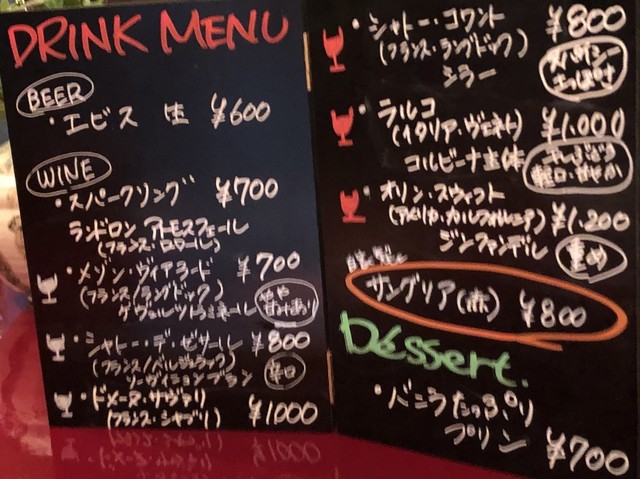 DRINK MENU
BEER
・エビス 生 ¥600
WINE
・スパークリング ¥700
ランドロン アトモスフェール
(フランス・ロワール)
・メゾン・ヴィアラード ¥700
(フランス/ラングドック)
ゲヴュルツトラミネール
やや甘みあり
・シャトー・デ・ゼサール ¥800
(フランス/ベルジュラック)
ソーヴィニョンブラン
辛口
・ドメーヌ・サヴァリ ¥1000
(フランス・シャブリ)
・シャトー・コワント ¥800
(フランス・ラングドック)
シラー
スパイシー
・ラルコ ¥1,000
(イタリア・ヴェネト)
コルビーナ主体
・オリン・スウィフト
(アメリカ・カルフォルニア) ¥1,200
ジンファンデル
重め
サングリア(赤) ¥800
Déssert.
・バニラたっぷり
プリン ¥700